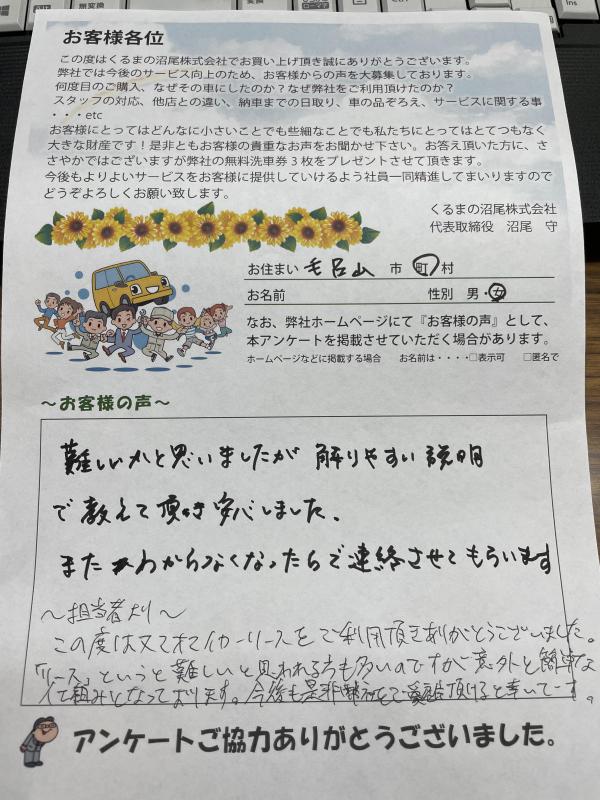 お客様各位
この度はくるまの沼尾株式会社でお買い上げ頂き誠にありがとうございます。
弊社では今後のサービス向上のため、お客様からの声を大募集しております。
何度目のご購入、なぜその車にしたのか？なぜ弊社をご利用頂けたのか？
スタッフの対応、他店との違い、納車までの日取り、車の品ぞろえ、サービスに関する事
・・・etc
お客様にとってはどんなに小さいことでも些細なことでも私たちにとってはとてつもなく
大きな財産です！是非ともお客様の貴重なお声をお聞かせ下さい。お答え頂いた方に、さ
さやかではございますが弊社の無料洗車券３枚をプレゼントさせて頂きます。
今後もよりよいサービスをお客様に提供していけるよう社員一同精進してまいりますので
どうぞよろしくお願い致します。
くるまの沼尾株式会社
代表取締役 沼尾 守
お住まい 毛呂山 市 町 村
お名前 性別 男・女
なお、弊社ホームページにて『お客様の声』として、
本アンケートを掲載させていただく場合があります。
ホームページなどに掲載する場合 お名前は・・・・□表示可 □匿名で
～お客様の声～
難しいかと思いましたが 解りやすい説明
で教えて頂き安心しました。
また わからなくなったらご連絡させてもらいます
～担当者より～
この度は マイカーリースをご利用頂きありがとうございました。
「リース」というと難しいと思われる方も多いのですが意外と簡単な
仕組みとなっております。今後も是非 頂けると幸いです。
アンケートご協力ありがとうございました。